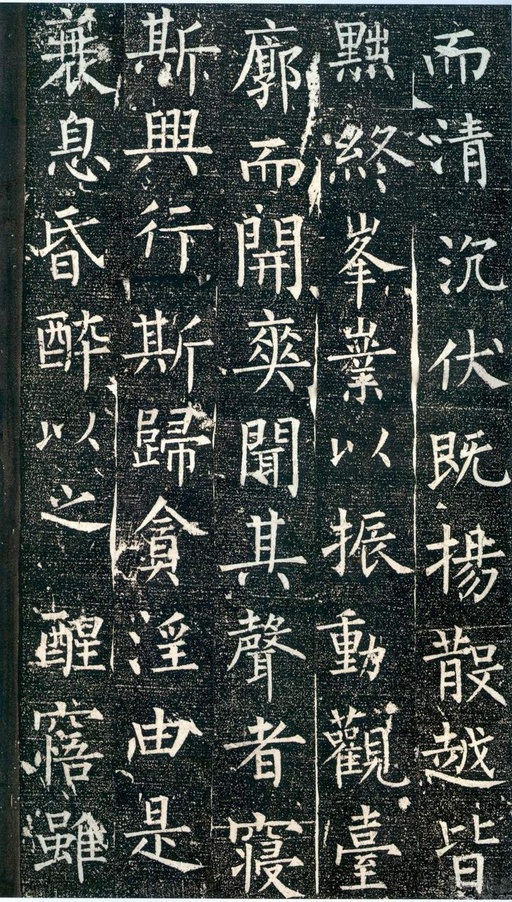 而清沉伏既揚散越皆
黜終峯業以振動觀臺
廓而開爽聞其聲者寢
斯興行斯歸貪淫由是
衰息昏醉以之醒寤雖